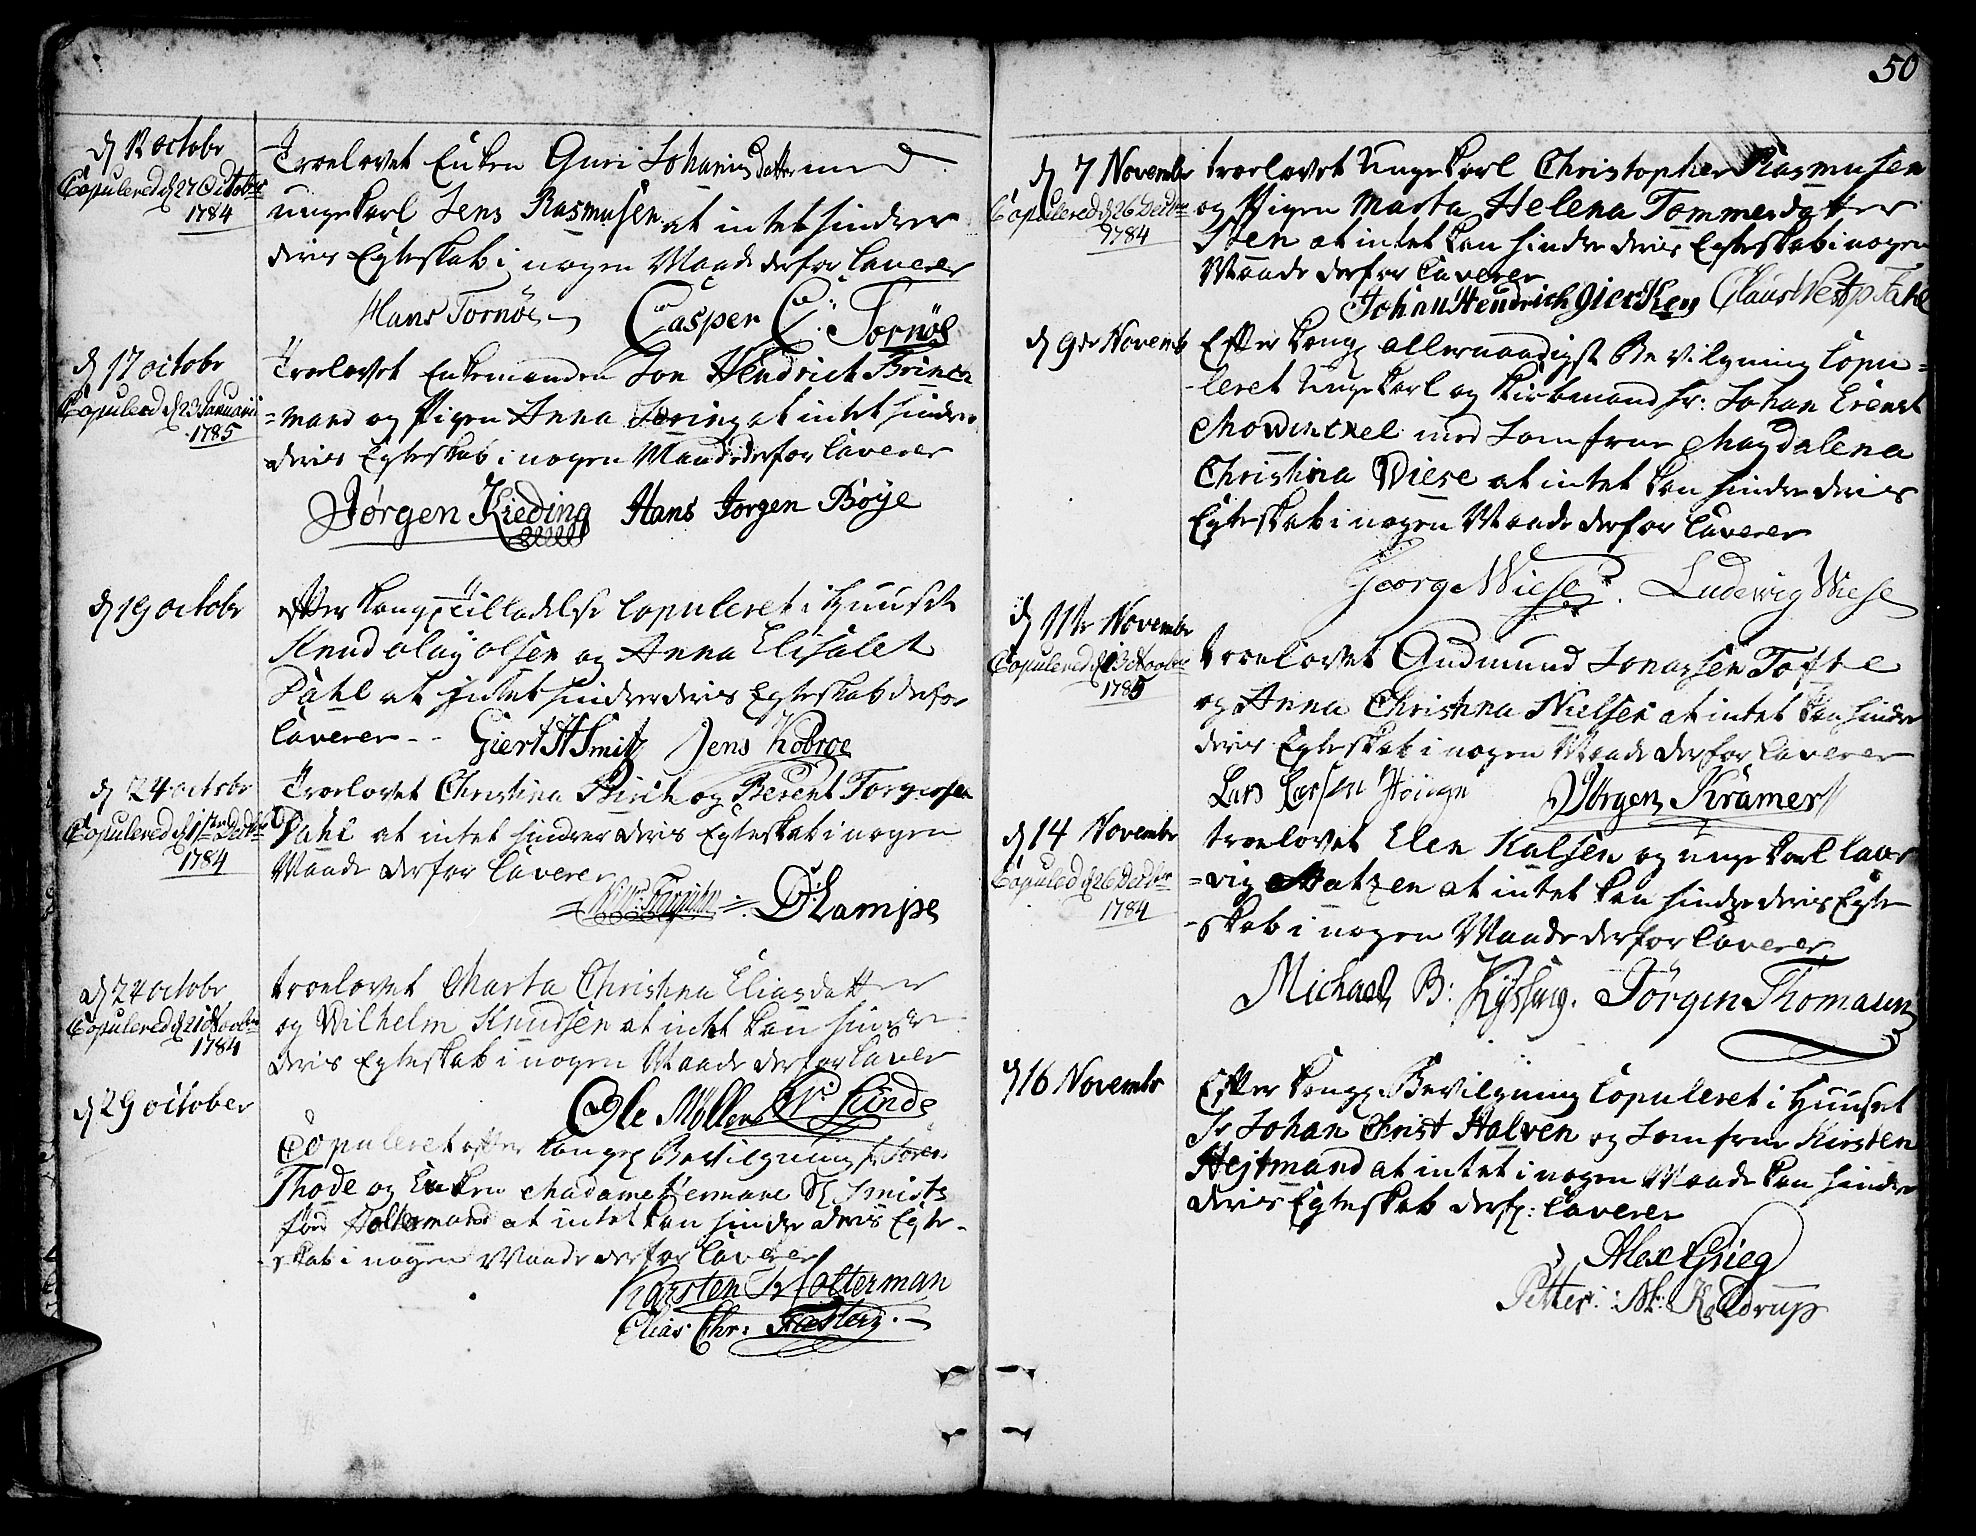 d 12 octobr
Copulered d 27 October
1784
Troelovet Enken Guri Johannis datter med
ungekarl Jens Rasmusen at intet hindrer
deris Egteskab i nogen Maade derfor Caverer
Hans Tornöe Casper C: Tornöe
d 17 octobr
Copulered d 23 Januari
1785
Troelovet Enkemanden Jon Hendrich Brinck
=mand og Pigen Anna at intet hindrer
deris Egteskab i nogen Maade derfor Caverer
Jørgen Kieding Hans Jørgen Böÿe
d 19 octobr
efter kong: tilladelse Copuleret i Huuset
Knud olaÿ olsen og Anna Elisabet
Dahl at Intet hindrer deris Egteskab derfor
Caverer - - Giert H Smit Jens Kobroe
d 24 octobr
Copulered d 1ste
1784
Troelovet Christina Birch og Berent Torgersen
Dahl at intet hindrer deris Egteskab i nogen
Maade derfor Caverer
D Lampe
d 24 octobr
Copulered d 21
1784
troelovet Marta Christina Eliasdatter
og Wilhelm Knudsen at intet kan hindre
deris Egteskab i nogen Maade derfor Caver
Ole Möller
d 29 october
Copuleret efter kong: Bevilgning hr Sören
Thode og Enken Madame Hermane Sl Smidts
föd Holtermand at intet kan hindre deris Egte-
-skab i nogen Maade derfor Caverer
Karsten Holterman
Elias: Chr:
50
d 7 Novembr
Copulered d 26
1784
troelovet Ungekarl Christopher Rasmusen
og Pigen Marta Helena Tommesdatter
Sten at intet kan hindre deris Egteskab i nogen
Maade derfor Caverer
Johan Hendrich Gierken Claus Westp Fahl
d 9de Novemb
Efter kong: allernaadigst Bevilgning Copu=
-leret Ungekarl og Kiøbmand hr: Johan Ernst
Mowinckel med Jomfrue Magdalena
Christina Wiese at intet kan hindre deris
Egteskab i nogen Maade derfor Caverer
Georg Wiese Ludewig Wiese
d 11te Novembr
Copulered d 13
1785
troelovet Gudmund Jonassen Tofte
og Anna Christina Nielsen at intet kan hindre
deris Egteskab i nogen Maade derfor Caverer
Lars Larsen Jörgen Krämer
d 14 Novembr
Copuled d 26
1784
troelovet Elen Kalsen og ungekarl Laur
=vig Matzen at intet kan hindre deris Egte
-skab i nogen Maade derfor Caverer
Michael B: Jörgen Thomasen
d 16 Novembr
Efter kong: Bevilgning Copuleret i Huuset
Hr Johan Christ Halven og Jomfrue Kirsten
Hejtmand at intet i nogen Maade kan hindre
deris Egteskab derf: Caverer
Alex Grieg
Petter: M: Koldrup